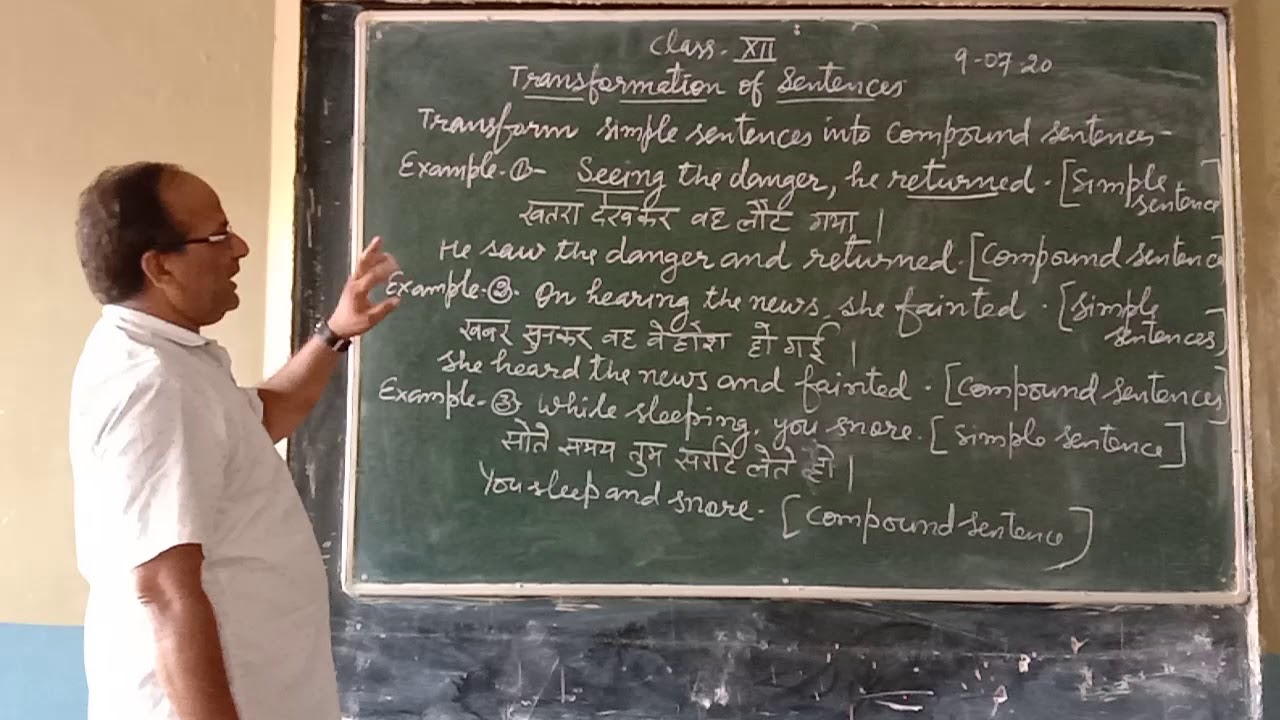 Class. XII
9-07-20
Transformation of Sentences
Transform simple sentences into compound sentences-
Example-①- Seeing the danger, he returned. [Simple sentence]
खतरा देखकर वह लौट गया।
He saw the danger and returned. [Compound sentence]
Example-②. On hearing the news, she fainted. [Simple sentences]
खबर सुनकर वह बेहोश हो गई।
She heard the news and fainted. [Compound sentences]
Example-③. While sleeping, you snore. [Simple sentence]
सोते समय तुम सर्राटे लेते हो।
You sleep and snore. [Compound sentence]